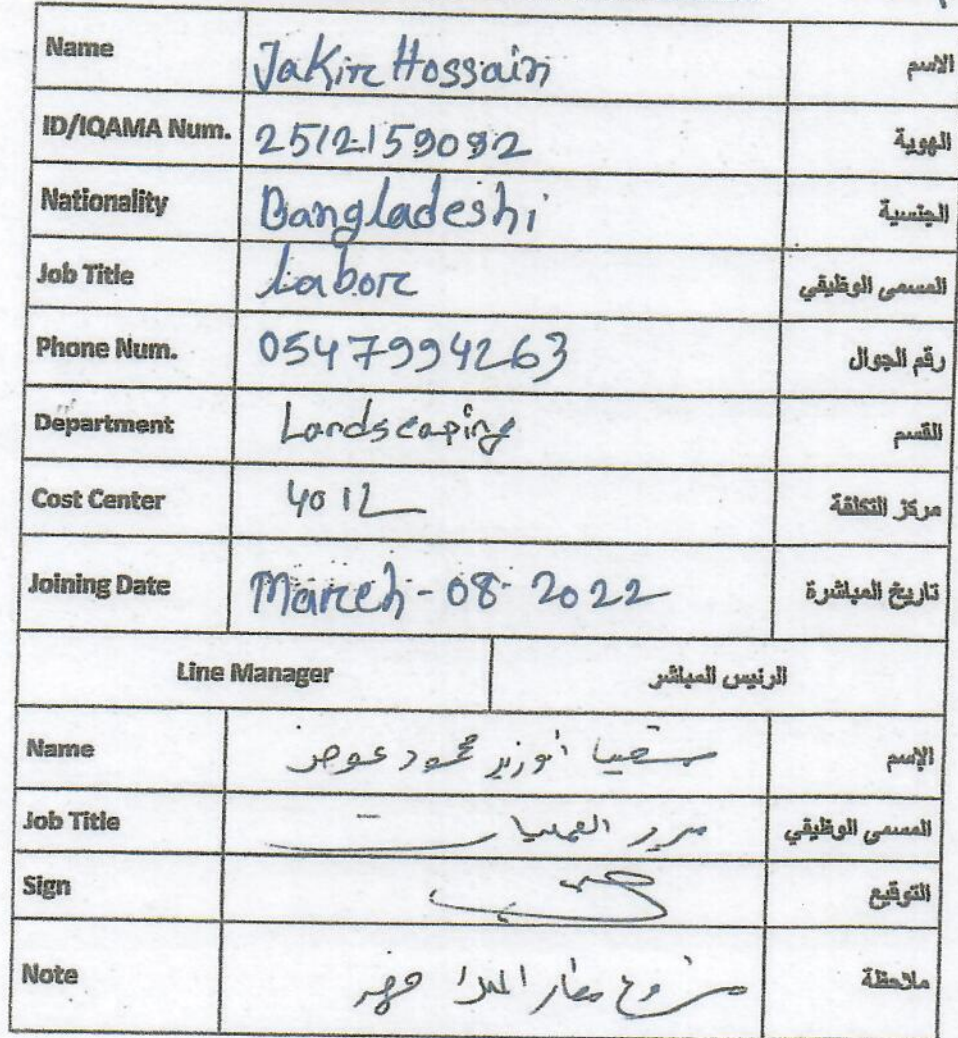 Name Jakirc Hossain الاسم
ID/IQAMA Num. 2512159092 الهوية
Nationality Bangladeshi الجنسية
Job Title Laborc المسمى الوظيفي
Phone Num. 05479994263 رقم الجوال
Department Landscaping القسم
Cost Center 4012 مركز التكلفة
Joining Date March - 08 - 2022 تاريخ المباشرة
Line Manager الرئيس المباشر
Name محمود عوض الإسم
Job Title مدير العمليات المسمى الوظيفي
Sign التوقيع
Note مشروع مطار الملك فهد ملاحظة